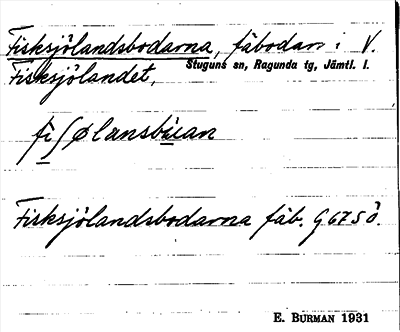 Fisksjölandsbodarna, fäbodar i V.
Stuguns sn, Ragunda tg, Jämtl. l.
Fisksjölandet,
fiſølansbu̇an
Fisksjölandsbodarna fäb. G 67 S Ö.
E. BURMAN 1931